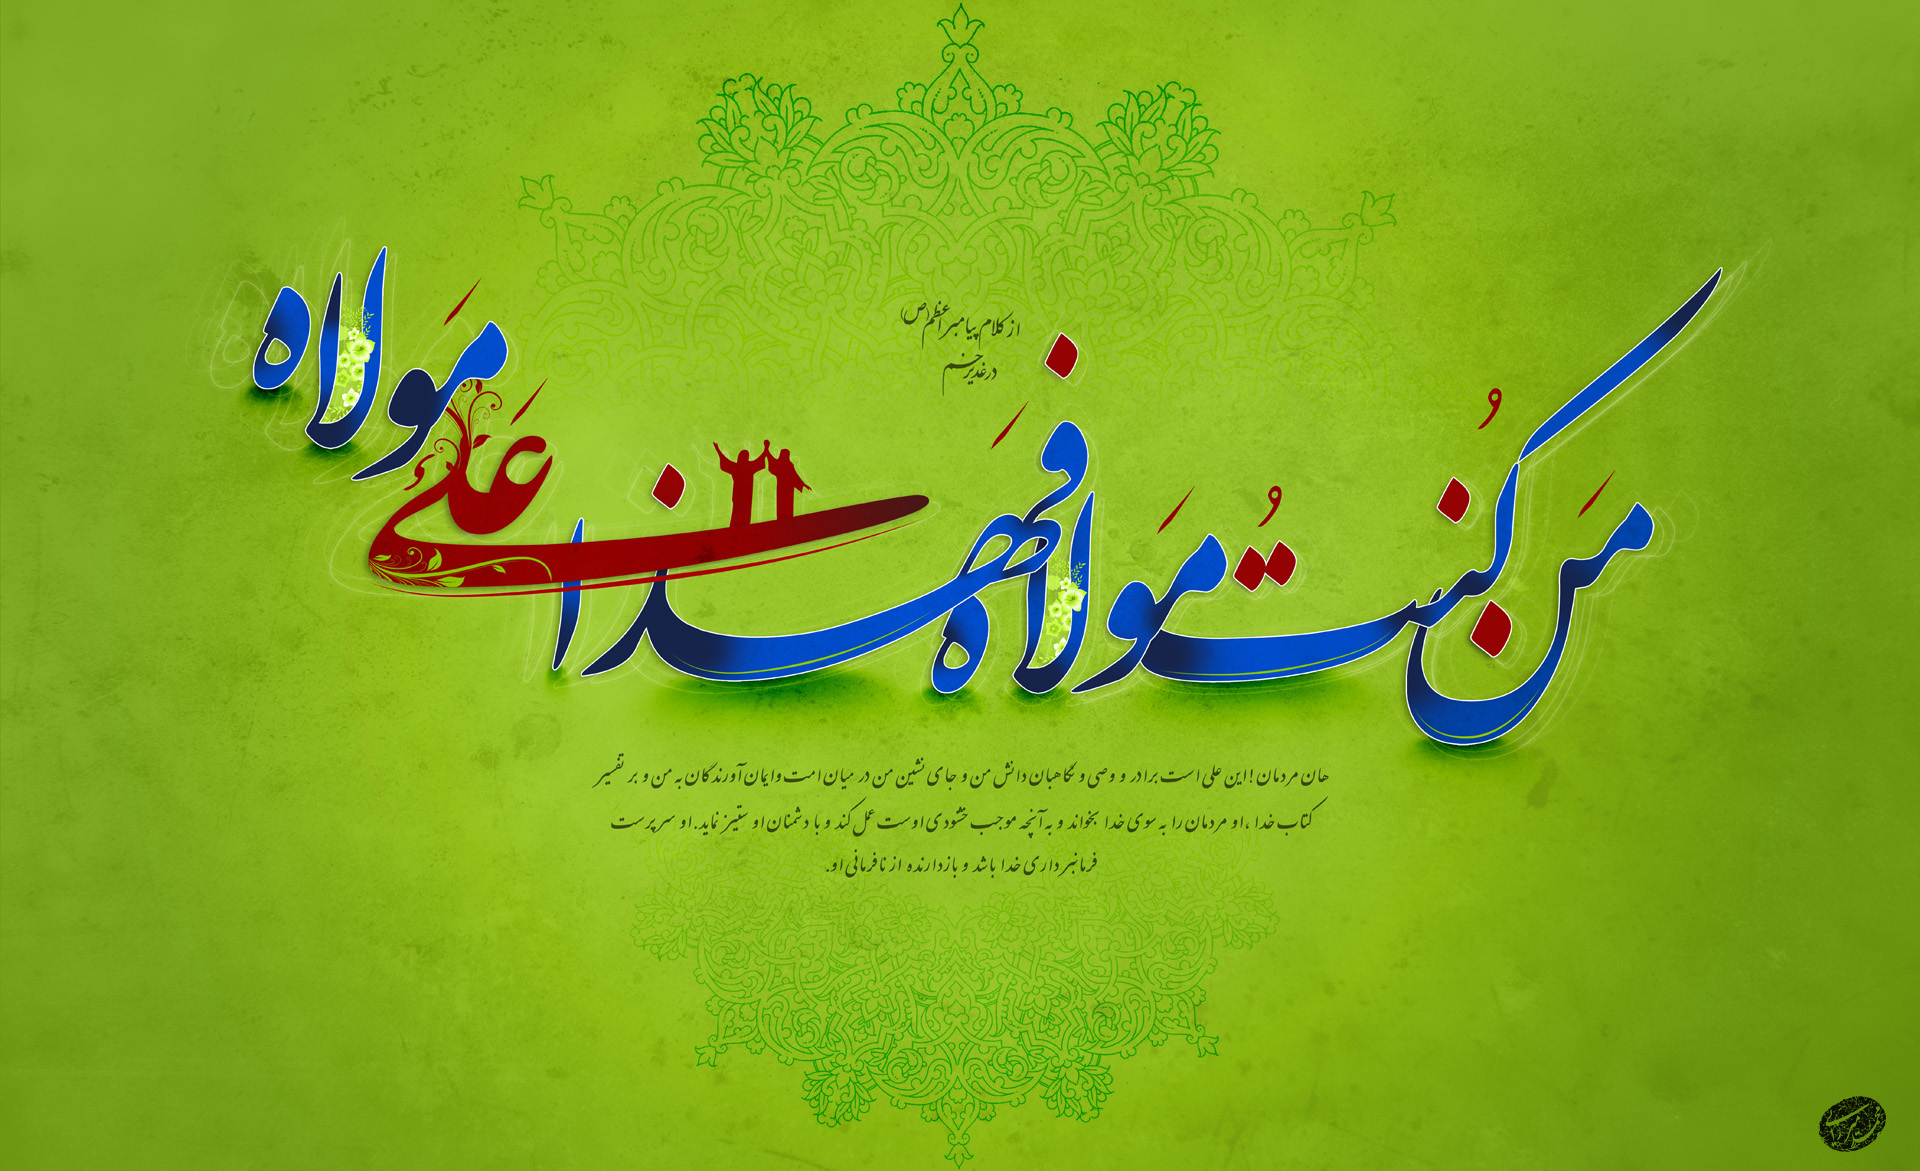 از کلام پیامبر اعظم(ص)
در غدیر خم
مَن کُنتُ مَولاه فَهذا عَلی مَولاه
هان مردمان! این علی است برادر و وصی و نگاهبان دانش من و جای نشین من در میان امت و ایمان آورندگان به من و بر تفسیر
کتاب خدا ،او مردمان را به سوی خدا بخواند و به آنچه موجب خشنودی اوست عمل کند و با دشمنان او ستیز نماید. او سرپرست
فرمانبرداری خدا باشد و بازدارنده از نافرمانی او.